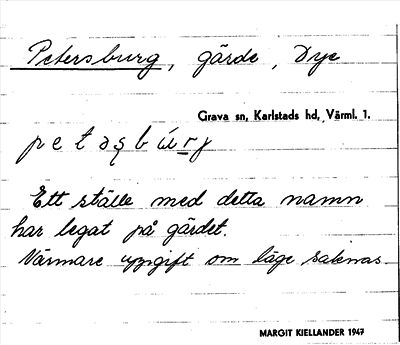 Petersburg, gärde, Dye
Grava sn, Karlstads hd, Värml. 1.
Ett ställe med detta namn
har legat på gärdet.
Närmare uppgift om läge saknas.
MARGIT KIELLANDER 1947